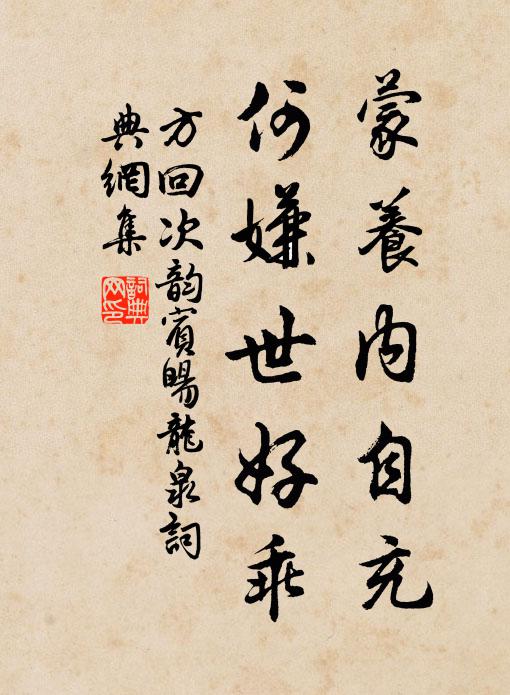 蒙養內自充
何嫌世好乖
方回次韵賓暘龍泉詞
典網集
詞典網印